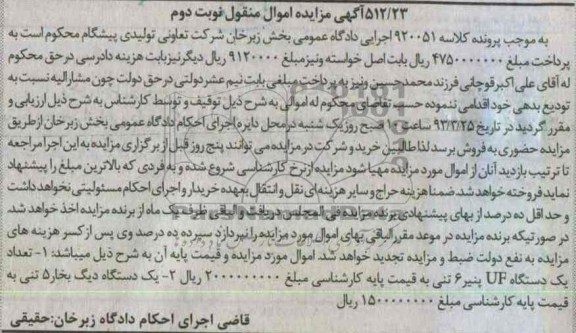 ۵۱۲/۲۳آگهی مزایده اموال منقول نوبت دوم
به موجب پرونده کلاسه ۹۲۰۰۵۱ اجرایی دادگاه عمومی بخش زبرخان شرکت تعاونی تولیدی پیشگام محکوم است به
پرداخت مبلغ ۴۷۵۰۰۰۰۰۰۰ ریال بابت اصل خواسته ونیز مبلغ ۹۱۲۰۰۰۰ ریال دیگر نیز بابت هزینه دادرسی درحق محکوم
له آقای علی اکبر قوچانی فرزند محمدحسین ونیز به پرداخت مبلغی بابت نیم عشر دولتی در حق دولت چون مشارالیه نسبت به
تودیع بدهی خود اقدامی ننموده حسب تقاضای محکوم له اموالی به شرح ذیل توقیف و توسط کارشناس به شرح ذیل ارزیابی و
مقرر گردید در تاریخ ۹۳/۲/۲۵ ساعت ۱۰ صبح روز یک شنبه در محل دایره اجرای احکام دادگاه عمومی بخش زبرخان از طریق
مزایده حضوری به فروش برسد لذا طالبین خرید و شرکت در مزایده می توانند پنج روز قبل از برگزاری مزایده به این اجرا مراجعه
تا ترتیب بازدید آنان از اموال مورد مزایده مهیا شود مزایده از نرخ کارشناسی شروع شده و به فردی که بالاترین مبلغ را پیشنهاد
نماید فروخته خواهد شد ضمنا هزینه حراج و سایر هزینه ای نقل و انتقال بعهده خریدار و اجرای احکام مسئولیتی نخواهد داشت
و حداقل ده درصد از بهای پیشنهادی برنده مزایده فی المجلس دریافت و الباقی ظرف یک ماه از برنده مزایده اخذ خواهد شد
در صورتیکه برنده مزایده در موعد مقرر الباقی بهای اموال مورد مزایده را نپردازد سپرده ده درصد وی پس از کسر هزینه های
مزایده به نفع دولت ضبط و مزایده تجدید خواهد شد. اموال مورد مزایده و قیمت پایه آن به شرح ذیل میباشد: ۱- تعداد
یک دستگاه UF پنیر ۶ تنی به قیمت پایه کارشناسی مبلغ ۲۰۰۰۰۰۰۰۰۰ ریال ۲- یک دستگاه دیگ بخار ۵ تنی به
قیمت پایه کارشناسی مبلغ ۱۵۰۰۰۰۰۰۰۰ ریال
قاضی اجرای احکام دادگاه زبرخان:حقیقی